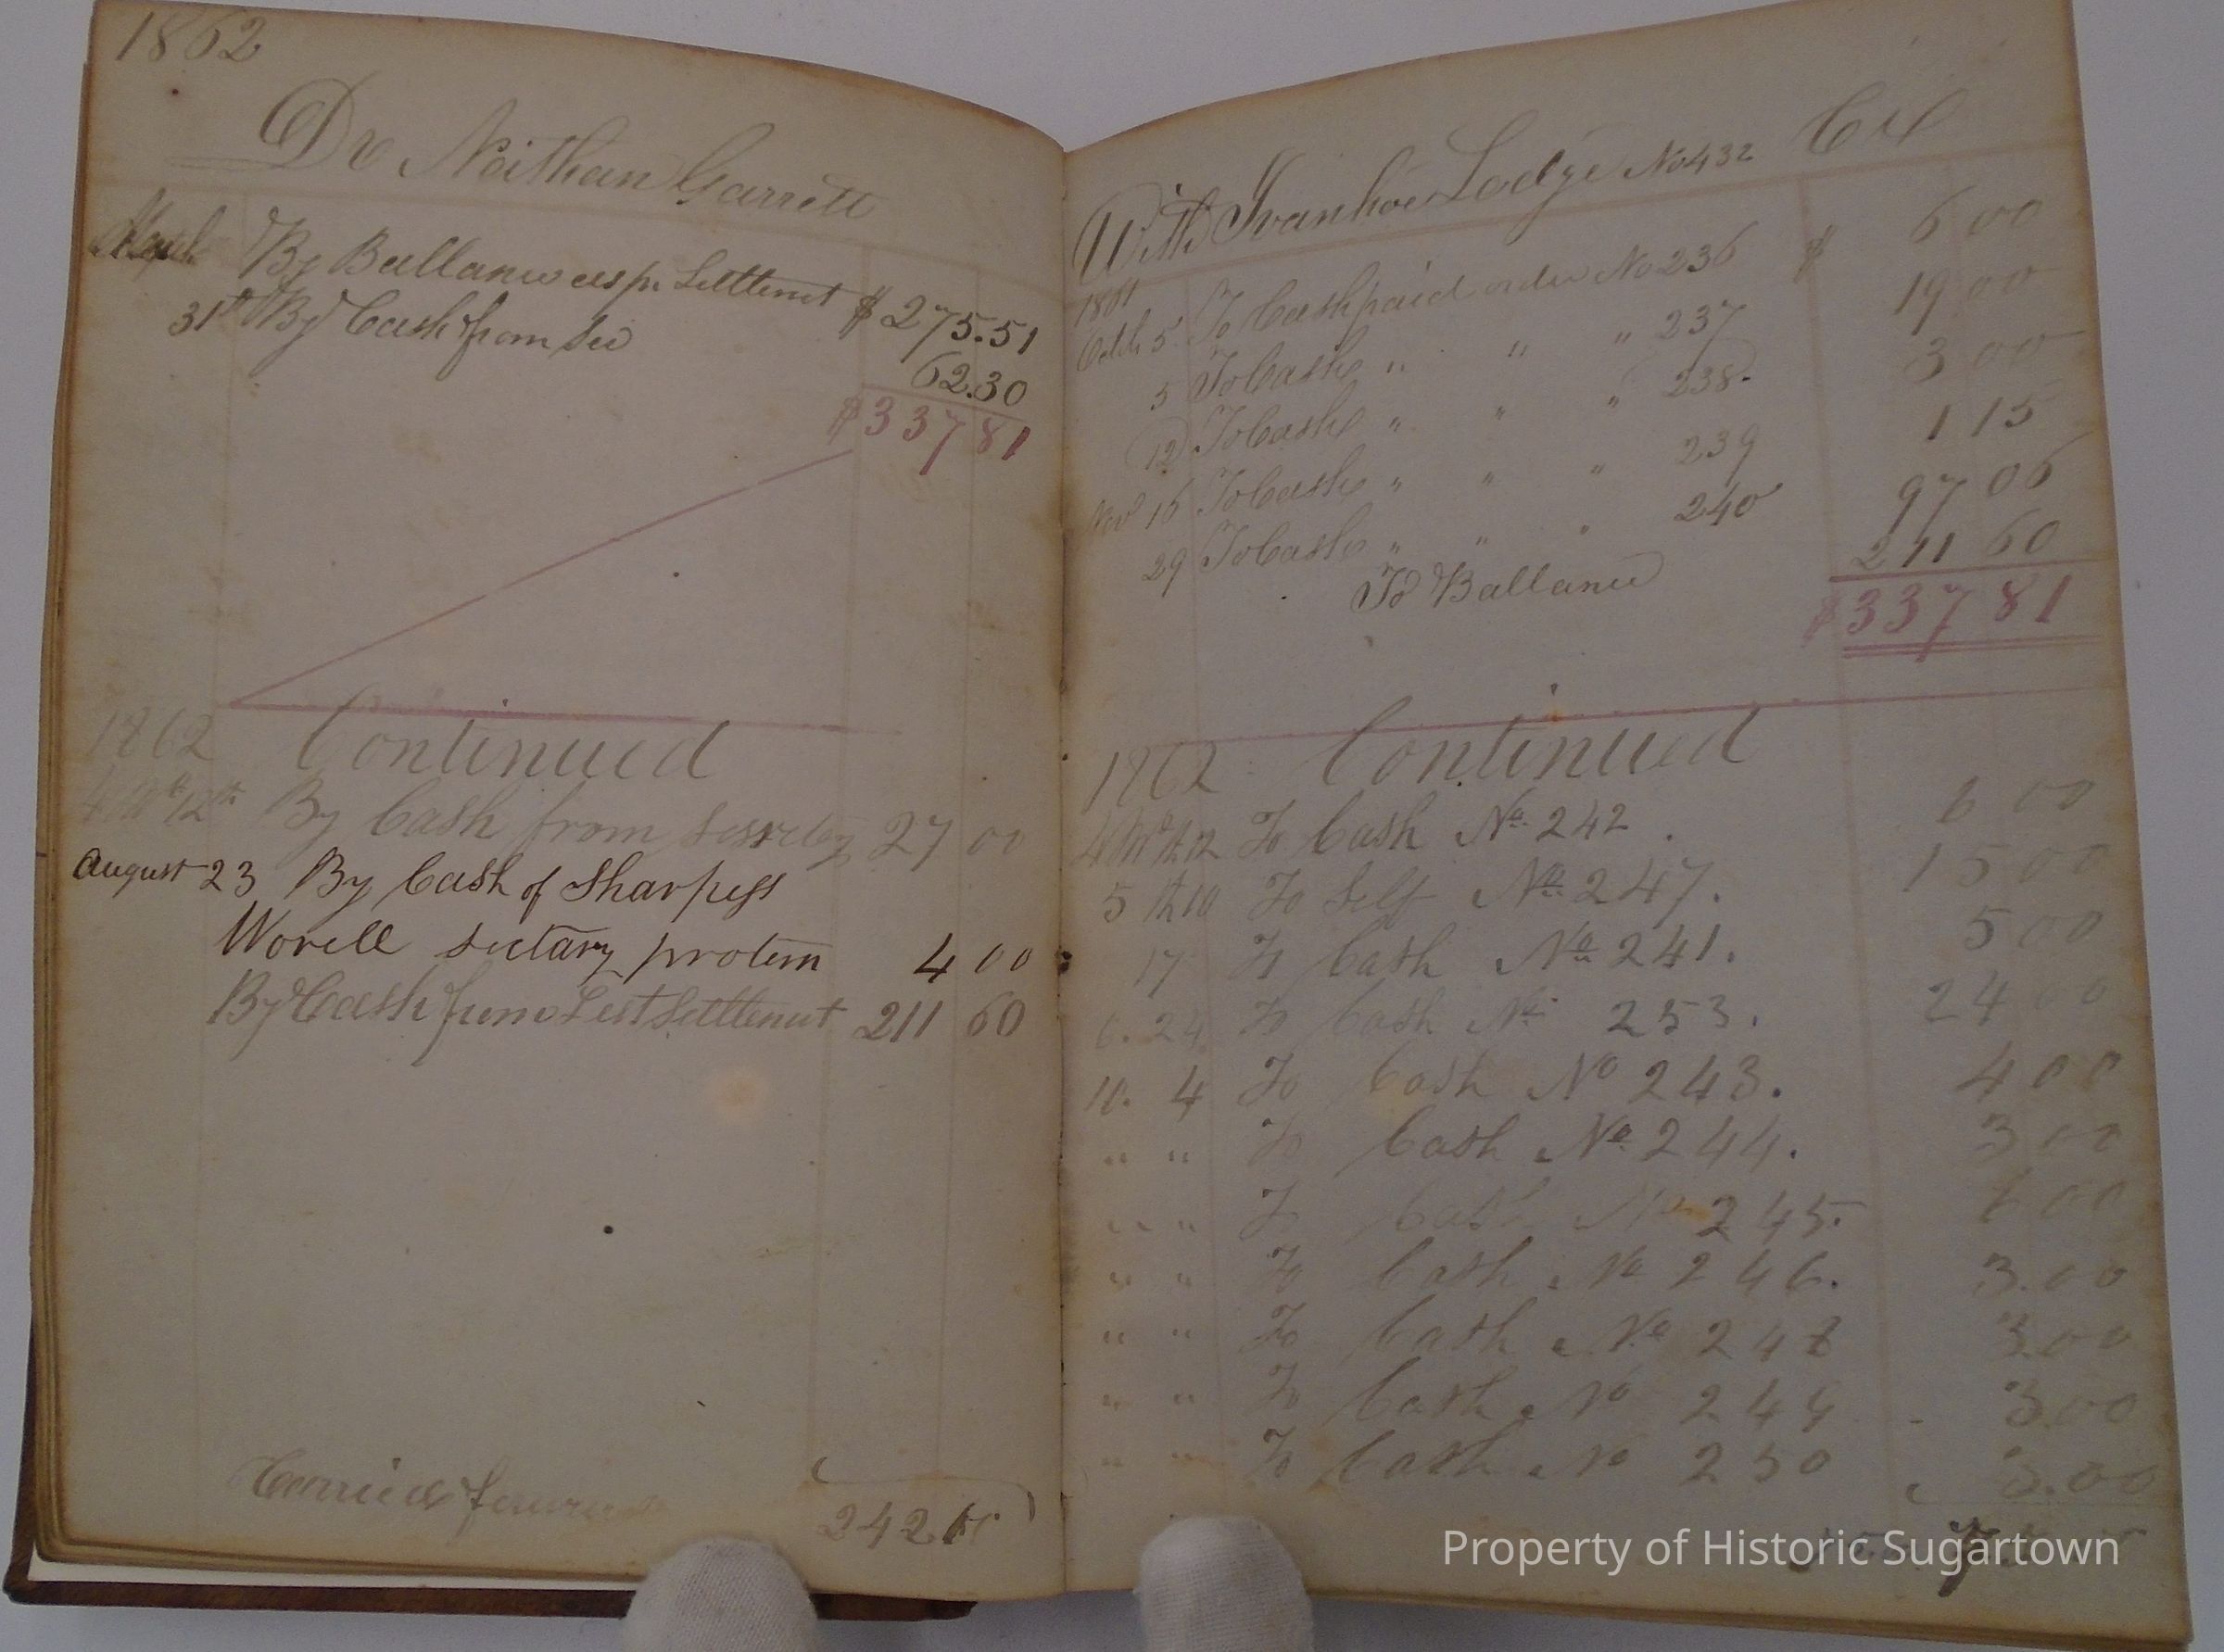 1862
Dr Neithan Garrett
March By Ballance as pr Settlemet $275.51
31st By Cash from Sec 62.30
$337 81
1862 Continued
4 Mo 12th By Cash from 27 00
August 23 By Cash of Sharpess
Worell sectary protem 4 00
By Cash from Last Settlemet 211 60
Carried forward 242 60
With Ivanhoe Lodge No 432 Cr
1861
Octb 5 To Cash paid order No 236 $ 6 00
5 To Cash " " " 237 19 00
12 To Cash " " " 238. 3 00
Nov 16 To Cash " " " 239 1 15
29 To Cash " " " 240 97 06
To Ballance 211 60
$337 81
1862 Continued
4 Mo 12 To Cash No. 242. 6 00
5 th 10 To Self No. 247. 15 00
17 To Cash No. 241. 5 00
6. 24 To Cash No. 253. 24 00
10. 4 To Cash No 243. 4 00
" " To Cash No. 244. 3 00
" " To Cash No 245. 6 00
" " To Cash No 246. 3.00
" " To Cash No 248 3.00
" " To Cash No 249 3.00
" " To Cash No 250 3.00
Property of Historic Sugartown